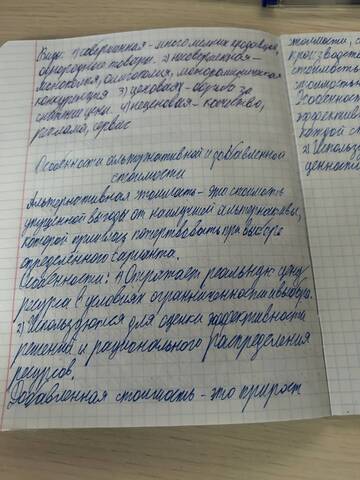 Виды: 1) совершенная - много мелких продавцов,
однородные товары. 2) несовершенная -
монополия, олигополия, монополистическая
конкуренция 3) ценовая - борьба за
снижение цены. 4) неценовая - качество,
реклама, сервис
Особенности альтернативной и добавленной
стоимости
Альтернативная стоимость - это стоимость
упущенной выгоды от наилучшей альтернативы,
которой пришлось пожертвовать при выборе
определённого варианта.
Особенности: 1) Отражает реальную цену
ресурса в условиях ограниченности и выбора.
2) Используются для оценки эффективности
решений и рационального распределения
ресурсов.
Добавленная стоимость - это прирост
стоимости, с
производств
стоимость
Особенно
эффектив
каждой ст
2) Использу
ценности